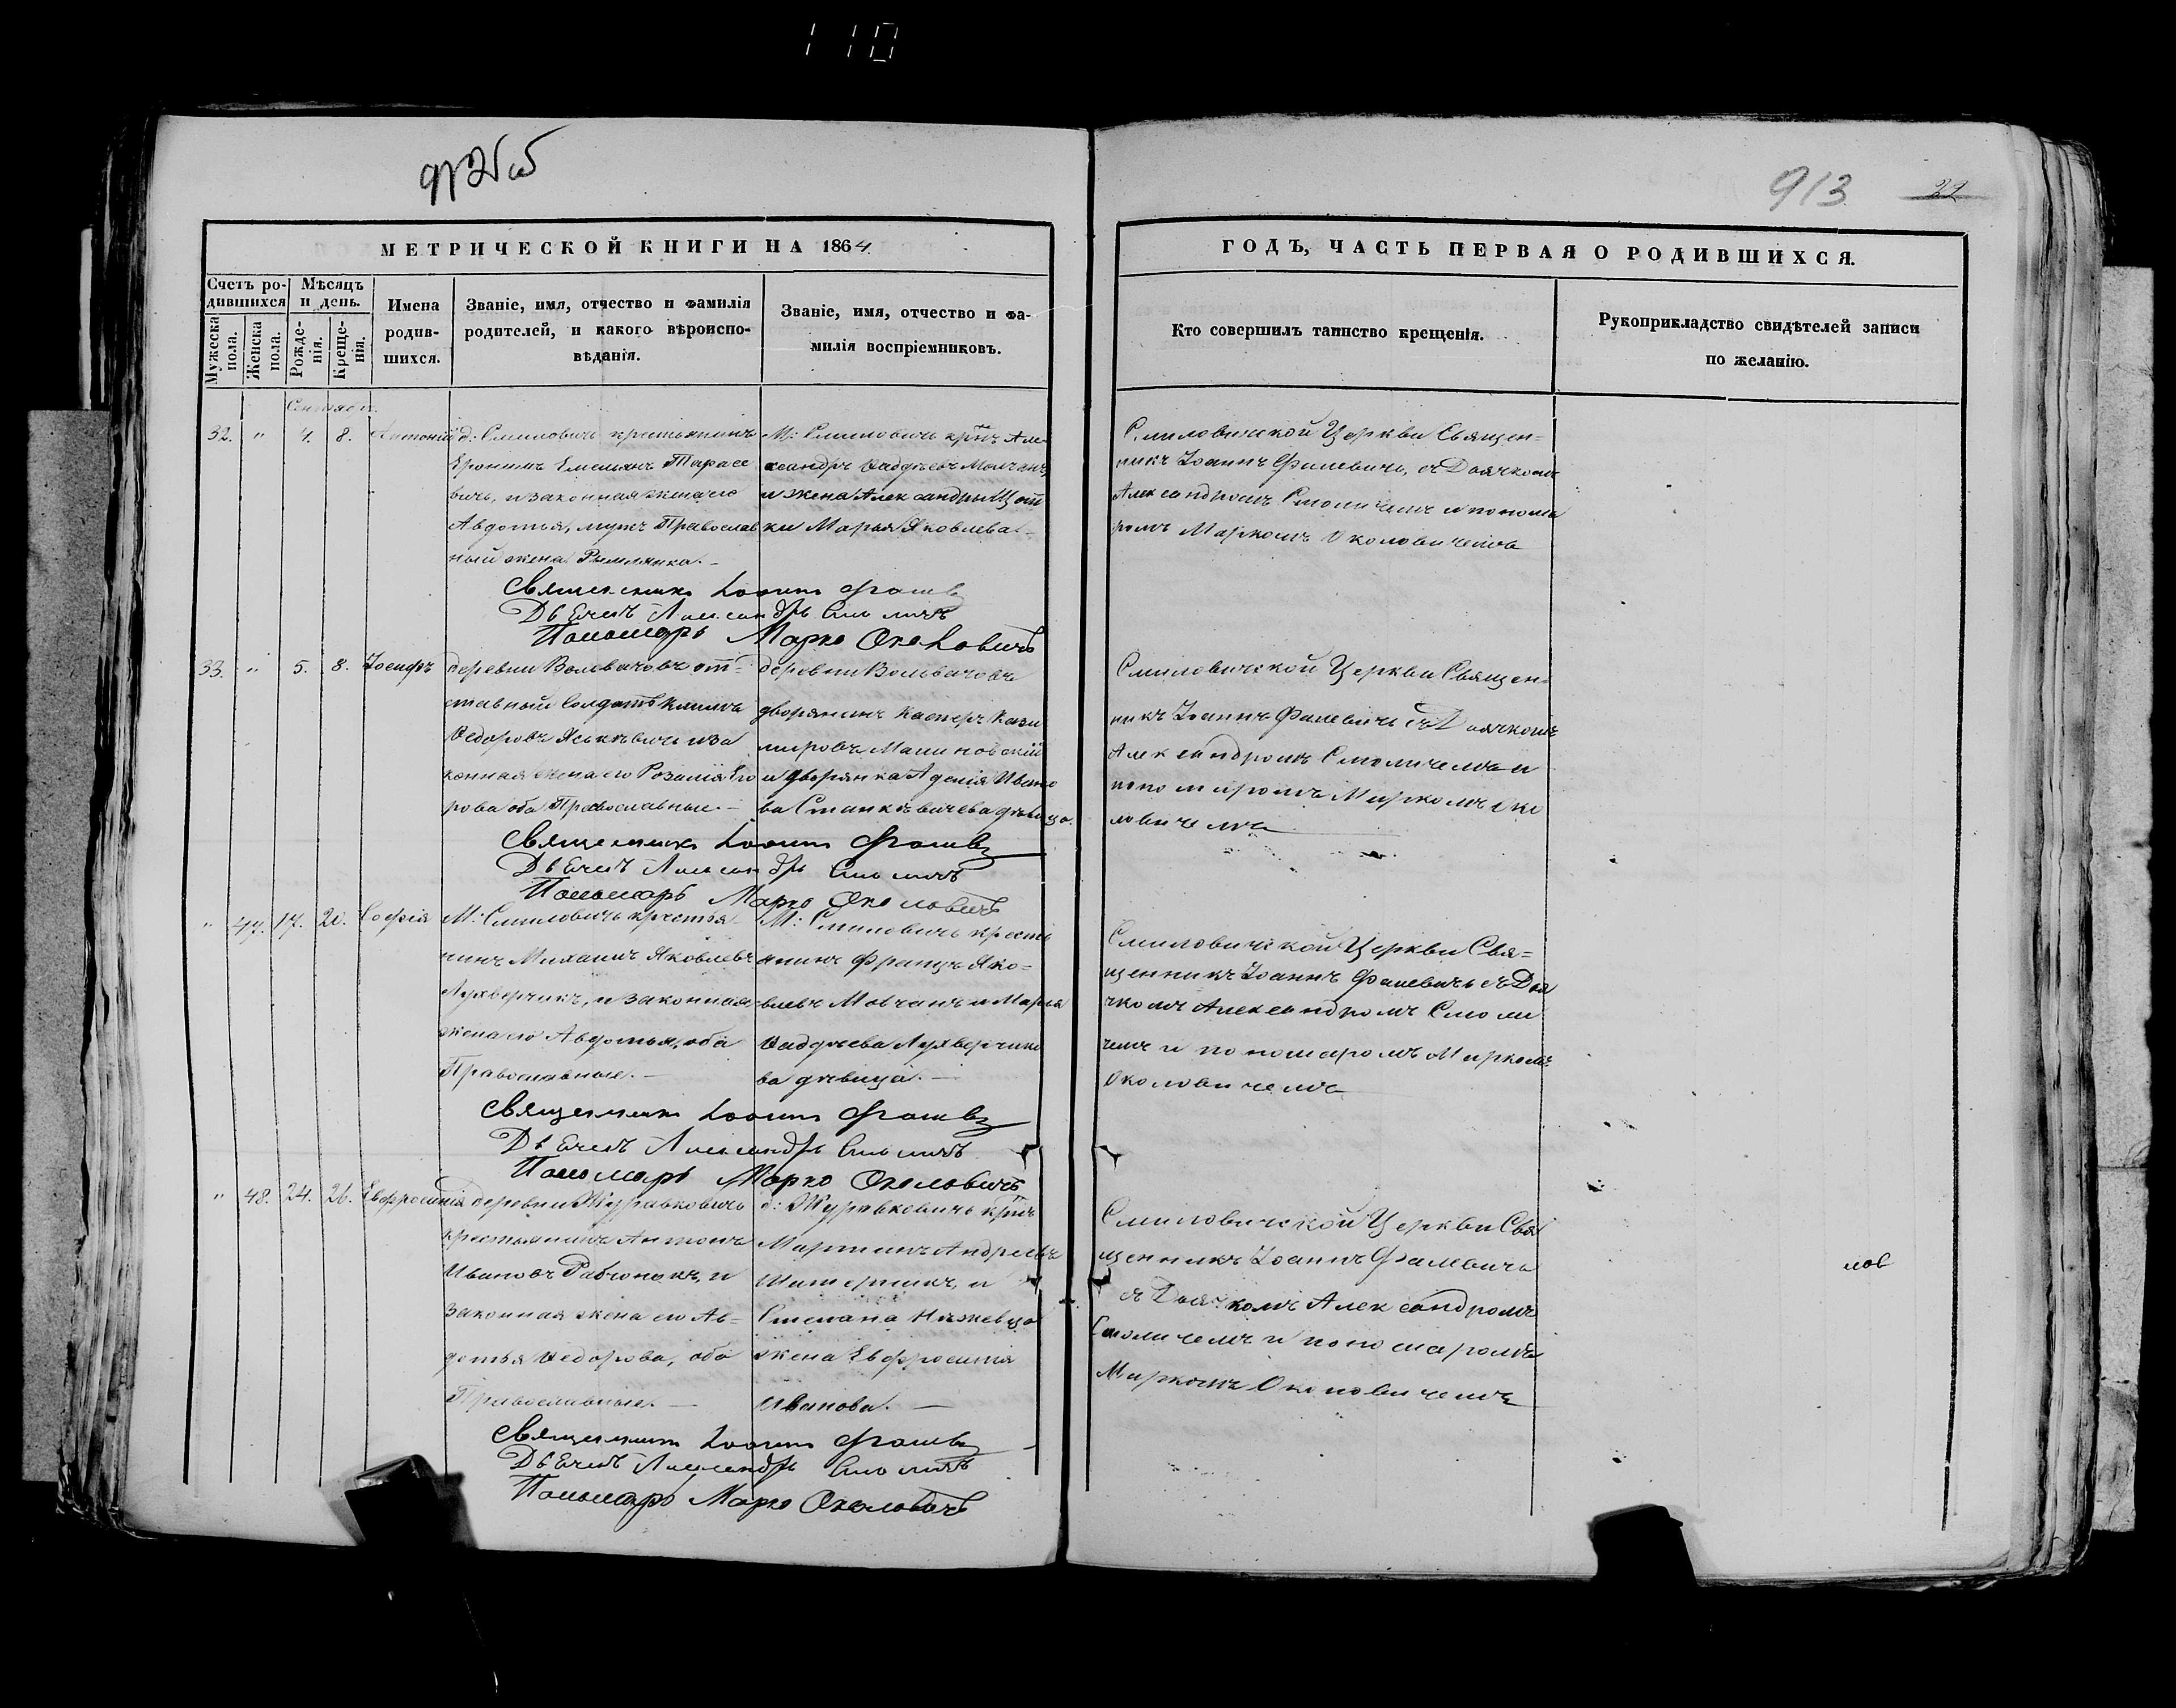 110
913 22
МЕТРИЧЕСКОЙ КНИГИ НА 1864.
Счетъ родившихся
Мужеска пола.
Женска пола.
Мѣсяцъ и день.
Рожденія.
Крещенія.
Имена родившихся.
Званіе, имя, отчество и фамилія
родителей, и какого вѣроиспо-
вѣданія.
Званіе, имя, отчество и фа-
милія воспріемниковъ.
ГОДЪ, ЧАСТЬ ПЕРВАЯ О РОДИВШИХСЯ.
Кто совершилъ таинство крещенія.
Рукоприкладство свидѣтелей записи
по желанію.
Сентябрь.
32. " 4. 8. Антоній
д: Смиловичъ крестьянинъ
Еронимъ Емельянъ Тарасе
вичъ, и законная жена его
Авдотья, мужъ Православ
ный жена Римлянка. –
М: Смиловичъ крнъ Але
ксандръ Фаддѣевъ Молчанъ,
и жена Александры
ки Марья Яковлева. –
Смиловичской Церкви Священ=
никъ Іоаннъ Фалевичъ, съ Дьячкомъ
Александромъ Смоличемъ и понома
ромъ Маркомъ Околовичемъ
Священникъ Іоаннъ
Дьячекъ Александръ Смоличъ
Пономарь Марко Околовичъ
33. " 5. 8. Іосифъ
деревни Волевачовъ от=
ставный Солдатъ Климъ
Федоровъ Яськѣвичъ и за
конная жена его Розалія Его
рова оба Православные. –
деревни Волевачовъ
дворянинъ Касперъ Кази
мировъ Малиновскій
и дворянка Аделія Ивано
ва Станкѣвичева дѣвица.
Смиловичской Церкви Священ=
никъ Іоаннъ Фалевичъ съ Дьячкомъ
Александромъ Смоличемъ и
пономаромъ Маркомъ Око
ловичемъ
Священникъ Іоаннъ
Дьячекъ Александръ Смоличъ
Пономарь Марко Околовичъ
" 47. 17. 20. Софія
М: Смиловичъ крестья
нинъ Михаилъ Яковлевъ
Лухверчикъ, и законная
жена его Авдотья, оба
Православные. –
М: Смиловичъ кресть
янинъ Францъ Яко=
влевъ Мовчанъ и Марья
Фаддѣева Лухверчико
ва дѣвица. –
Смиловичской Церкви Свя=
щенникъ Іоаннъ Фалевичъ съ Дья
чкомъ Александромъ Смоли
чемъ и пономаромъ Маркомъ
Околовичемъ
Священникъ Іоаннъ
Дьячекъ Александръ Смоличъ
Пономарь Марко Околовичъ
" 48. 24. 26. Евфросинія
деревни Журавковичъ
крестьянинъ Антонъ
Ивановъ Рабчонокъ, и
законная жена его Ав=
дотья Федорова, оба
Православные. –
д: Журавковичъ крнъ
Мартинъ Андреевъ
и
Степана
жена Евфросинія
Иванова. –
Смиловичской Церкви Свя
щенникъ Іоаннъ Фалевичъ
съ Дьячкомъ Александромъ
Смоличемъ и пономаромъ
Маркомъ Околовичемъ
Священникъ Іоаннъ
Дьячекъ Александръ Смоличъ
Пономарь Марко Околовичъ